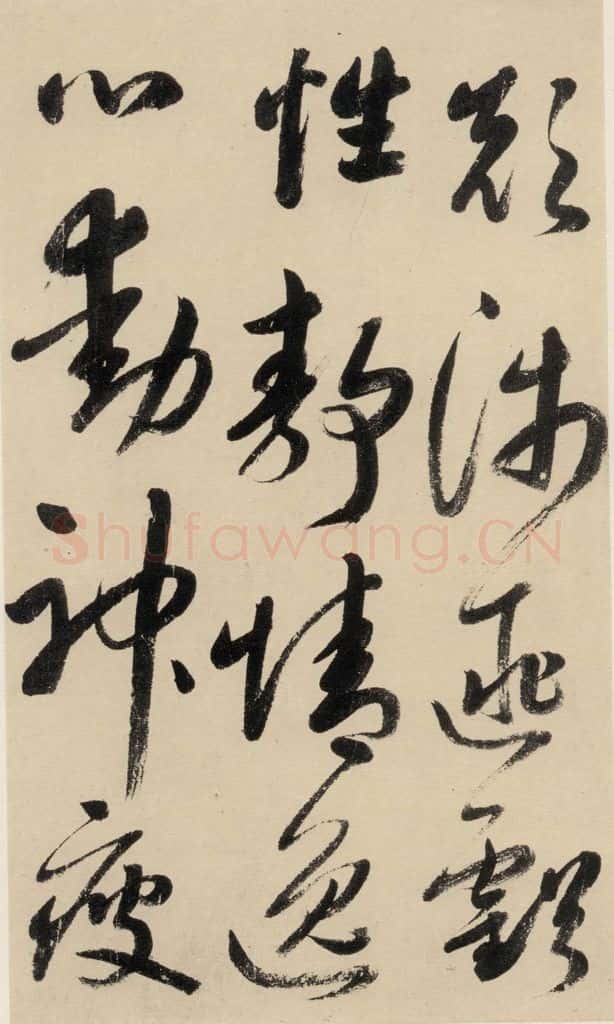 顛沛匪虧
性靜情逸
心動神疲
Shufawang.CN